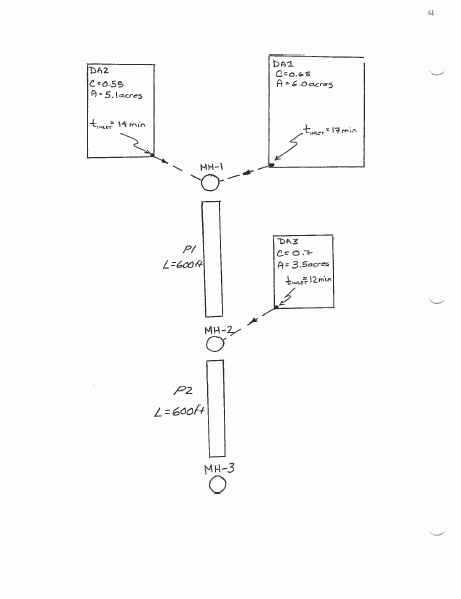 4
DA2
C=0.55
A=5.1acres
tINLET=14min
DA1
C=0.65
A=6.0acres
tINLET=17min
MH-1
P1
L=600ft
DA3
C=0.7
A=3.5acres
tINLET=12min
MH-2
P2
L=600ft
MH-3